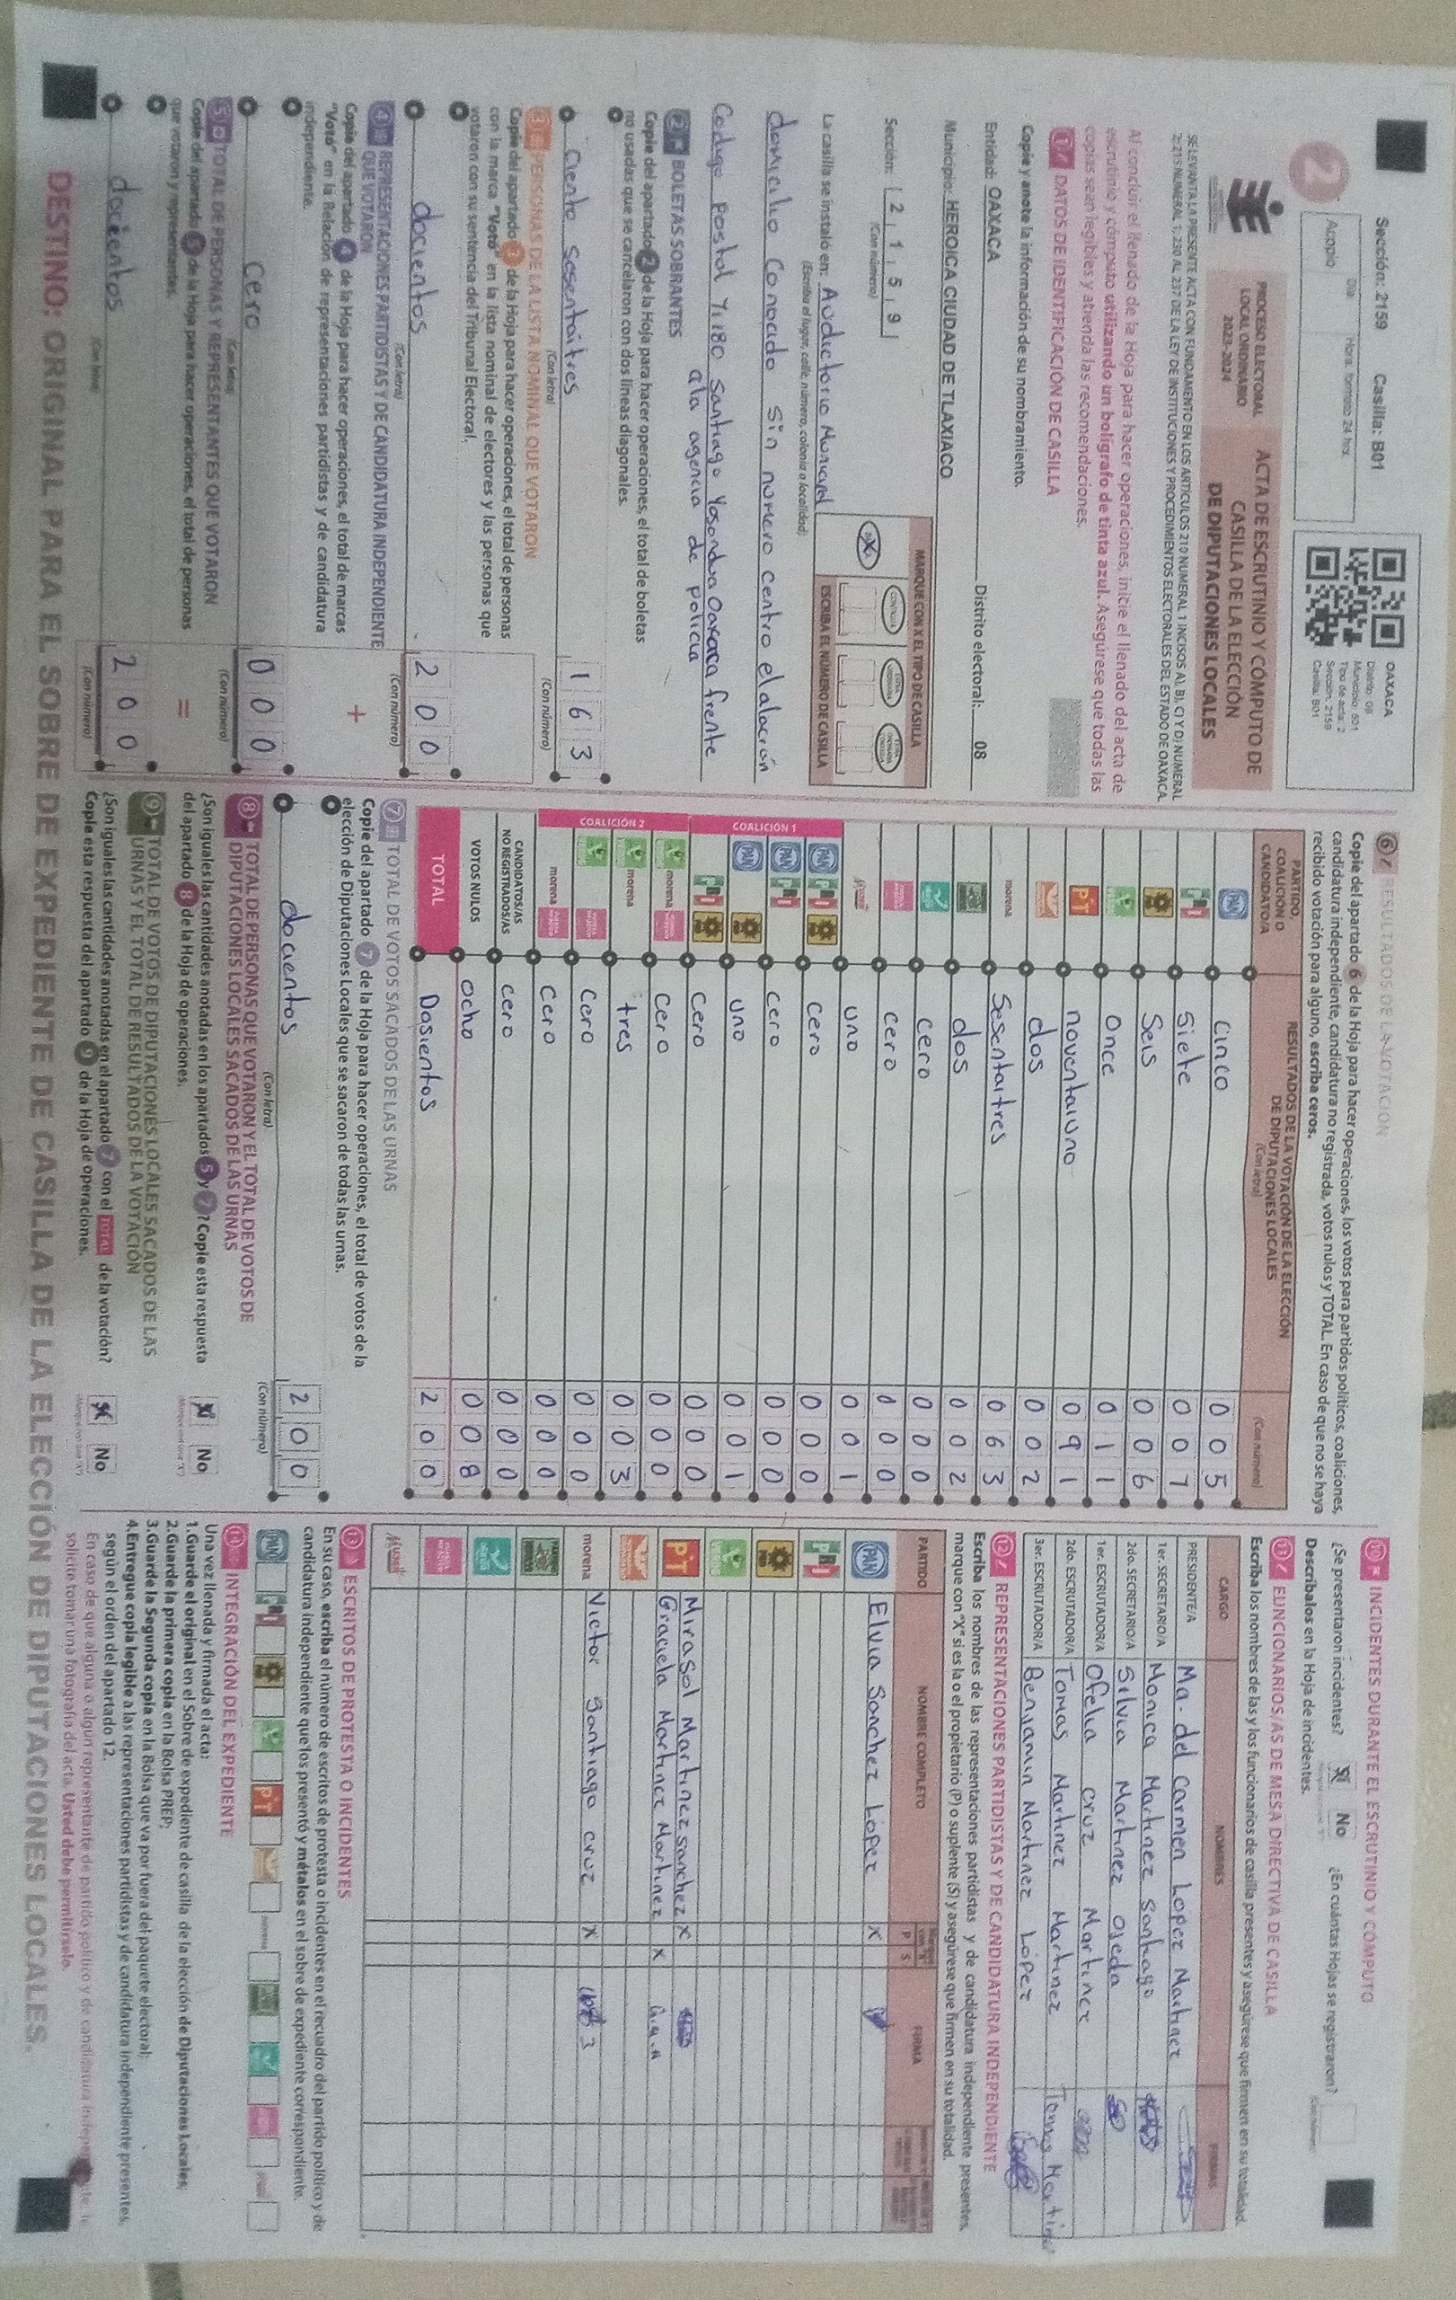 Sección: 2159 Casilla: B01
Día: Hora, formato 24 hrs.
Acopio
OAXACA
Distrito: 08
Municipio: 501
Tipo de acta: 2
Sección: 2159
Casilla: B01
2
PROCESO ELECTORAL
LOCAL ORDINARIO
2023-2024
ACTA DE ESCRUTINIO Y CÓMPUTO DE
CASILLA DE LA ELECCIÓN
DE DIPUTACIONES LOCALES
SE LEVANTA LA PRESENTE ACTA CON FUNDAMENTO EN LOS ARTÍCULOS 210 NUMERAL 1 INCISOS A), B), C) Y D) NUMERAL
2; 215 NUMERAL 1; 230 AL 237 DE LA LEY DE INSTITUCIONES Y PROCEDIMIENTOS ELECTORALES DEL ESTADO DE OAXACA.
Al concluir el llenado de la Hoja para hacer operaciones, inicie el llenado del acta de
escrutinio y cómputo utilizando un bolígrafo de tinta azul. Asegúrese que todas las
copias sean legibles y atienda las recomendaciones.
1 DATOS DE IDENTIFICACIÓN DE CASILLA
Copie y anote la información de su nombramiento.
Entidad: OAXACA Distrito electoral: 08
Municipio: HEROICA CIUDAD DE TLAXIACO
Sección: 2 1 5 9
(Con número)
MARQUE CON X EL TIPO DE CASILLA
ESCRIBA EL NÚMERO DE CASILLA
La casilla se instaló en: Audictorio Municipal
(Escriba el lugar, calle, número, colonia o localidad)
domicilio Conocido sin numero centro elalacrán
Codigo postal 71180 Santiago Yosondua Oaxaca frente
ala agencia de policia
2 BOLETAS SOBRANTES
Copie del apartado 2 de la Hoja para hacer operaciones, el total de boletas
no usadas que se cancelaron con dos líneas diagonales.
Ciento sesentaitres 1 6 3
(Con letra) (Con número)
3 PERSONAS DE LA LISTA NOMINAL QUE VOTARON
Copie del apartado 3 de la Hoja para hacer operaciones, el total de personas
con la marca "Votó" en la lista nominal de electores y las personas que
votaron con su sentencia del Tribunal Electoral.
docientos 2 0 0
(Con letra) (Con número)
4 REPRESENTACIONES PARTIDISTAS Y DE CANDIDATURA INDEPENDIENTE
QUE VOTARON
Copie del apartado 4 de la Hoja para hacer operaciones, el total de marcas
"Votó" en la Relación de representaciones partidistas y de candidatura
independiente.
+
Cero 0 0 0
(Con letra) (Con número)
5 TOTAL DE PERSONAS Y REPRESENTANTES QUE VOTARON
Copie del apartado 5 de la Hoja para hacer operaciones, el total de personas
que votaron y representantes.
=
docientos 2 0 0
(Con letra) (Con número)
6 RESULTADOS DE LA VOTACIÓN
Copie del apartado 6 de la Hoja para hacer operaciones, los votos para partidos políticos, coaliciones,
candidatura independiente, candidatura no registrada, votos nulos y TOTAL. En caso de que no se haya
recibido votación para alguno, escriba ceros.
PARTIDO,
COALICIÓN O
CANDIDATO/A
RESULTADOS DE LA VOTACIÓN DE LA ELECCIÓN
DE DIPUTACIONES LOCALES
(Con letra) (Con número)
PAN Cinco 0 0 5
PRI Siete 0 0 7
Seis 0 0 6
Once 0 1 1
PT noventaiuno 0 9 1
dos 0 0 2
morena Sesentaitres 0 6 3
dos 0 0 2
cero 0 0 0
cero 0 0 0
uno 0 0 1
COALICIÓN 1
PAN PRI cero 0 0 0
PAN PRI cero 0 0 0
PAN uno 0 0 1
PRI cero 0 0 0
COALICIÓN 2
morena cero 0 0 0
morena tres 0 0 3
cero 0 0 0
morena cero 0 0 0
CANDIDATOS/AS
NO REGISTRADOS/AS cero 0 0 0
VOTOS NULOS ocho 0 0 8
TOTAL Dosientos 2 0 0
7 TOTAL DE VOTOS SACADOS DE LAS URNAS
Copie del apartado 7 de la Hoja para hacer operaciones, el total de votos de la
elección de Diputaciones Locales que se sacaron de todas las urnas.
docientos 2 0 0
(Con letra) (Con número)
8 TOTAL DE PERSONAS QUE VOTARON Y EL TOTAL DE VOTOS DE
DIPUTACIONES LOCALES SACADOS DE LAS URNAS
¿Son iguales las cantidades anotadas en los apartados 5 y 7? Copie esta respuesta
del apartado 8 de la Hoja de operaciones.
X No
9 TOTAL DE VOTOS DE DIPUTACIONES LOCALES SACADOS DE LAS
URNAS Y EL TOTAL DE RESULTADOS DE LA VOTACIÓN
¿Son iguales las cantidades anotadas en el apartado 7 con el TOTAL de la votación?
Copie esta respuesta del apartado 9 de la Hoja de operaciones.
X No
10 INCIDENTES DURANTE EL ESCRUTINIO Y CÓMPUTO
¿Se presentaron incidentes? X No ¿En cuántas Hojas se registraron?
Descríbalos en la Hoja de incidentes.
11 FUNCIONARIOS/AS DE MESA DIRECTIVA DE CASILLA
Escriba los nombres de las y los funcionarios de casilla presentes y asegúrese que firmen en su totalidad.
CARGO NOMBRES FIRMAS
PRESIDENTE/A Ma. del Carmen Lopez Martinez
1er. SECRETARIO/A Monica Martinez Santiago
2do. SECRETARIO/A Silvia Martinez Ojeda
1er. ESCRUTADOR/A Ofelia Cruz Martinez
2do. ESCRUTADOR/A Tomas Martinez Martinez Tomas Martinez
3er. ESCRUTADOR/A Benjamin Martinez López
12 REPRESENTACIONES PARTIDISTAS Y DE CANDIDATURA INDEPENDIENTE
Escriba los nombres de las representaciones partidistas y de candidatura independiente presentes,
marque con "X" si es la o el propietario (P) o suplente (S) y asegúrese que firmen en su totalidad.
PARTIDO NOMBRE COMPLETO P S FIRMA
PAN Elvia Sanchez López X
PRI
PT Mirasol Martinez sanchez X
Graciela Martinez Martinez X
morena Victor Santiago Cruz X
13 ESCRITOS DE PROTESTA O INCIDENTES
En su caso, escriba el número de escritos de protesta o incidentes en el recuadro del partido político y de
candidatura independiente que los presentó y métalos en el sobre de expediente correspondiente.
14 INTEGRACIÓN DEL EXPEDIENTE
Una vez llenada y firmada el acta:
1.Guarde el original en el Sobre de expediente de casilla de la elección de Diputaciones Locales;
2.Guarde la primera copia en la Bolsa PREP;
3.Guarde la Segunda copia en la Bolsa que va por fuera del paquete electoral;
4.Entregue copia legible a las representaciones partidistas y de candidatura independiente presentes,
según el orden del apartado 12.
En caso de que alguna o algún representante de partido político y de candidatura independiente, le
solicite tomar una fotografía del acta. Usted debe permitírselo.
DESTINO: ORIGINAL PARA EL SOBRE DE EXPEDIENTE DE CASILLA DE LA ELECCIÓN DE DIPUTACIONES LOCALES.